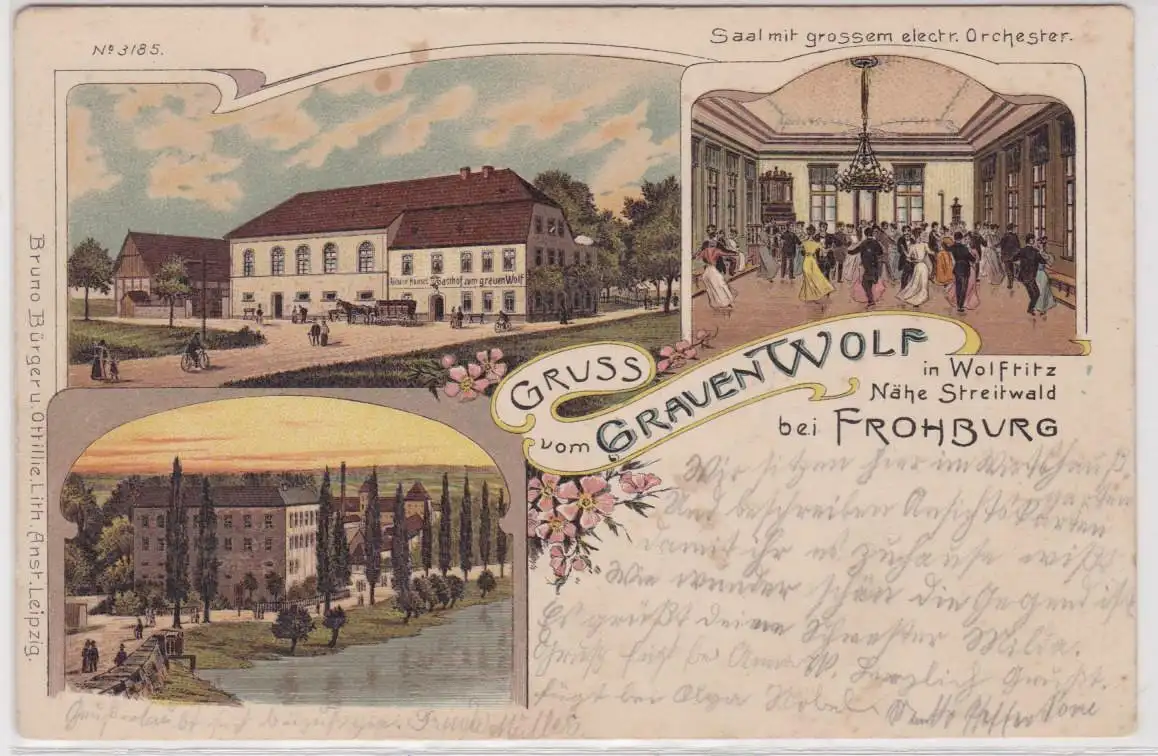 Nº 3185.
Saal mit grossem electr. Orchester.
Gasthof zum grauen Wolf
GRUSS
vom GRAUEN WOLF
in Wolftitz
Nähe Streitwald
bei FROHBURG
Bruno Bürger u. Ottillie, Lith. Anst. Leipzig.
Wir sitzen hier im Wirtshaus
Und beschreiben Ansichtskarten
damit ihr es zuhause wißt
Wie wunder schön die Gegend ist
Es grüßt deine Schwester Milda
Gruß fügt bei Anna W. Herzlich Gruß
fügt bei Olga Nobel
Müller